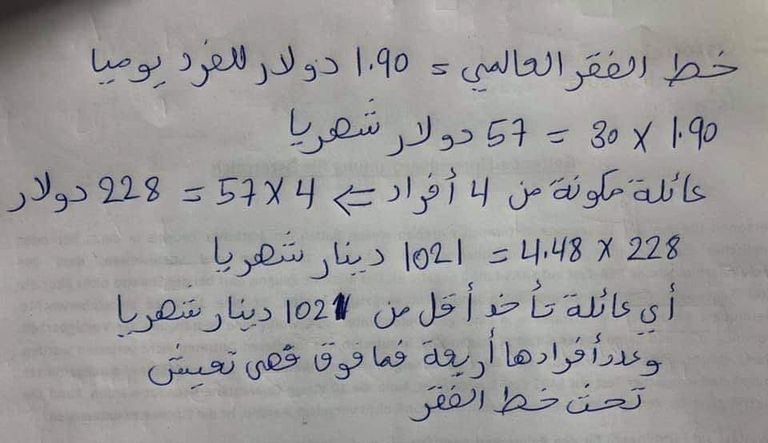 خط الفقر العالمي = 1.90 دولار للفرد يوميا
1.90 × 30 = 57 دولار شهريا
عائلة مكونة من 4 أفراد ⇐ 4×57 = 228 دولار
228 × 4.48 = 1021 دينار شهريا
أي عائلة تأخذ أقل من 1021 دينار شهريا
وعدد أفرادها أربعة فما فوق فهي تعيش
تحت خط الفقر